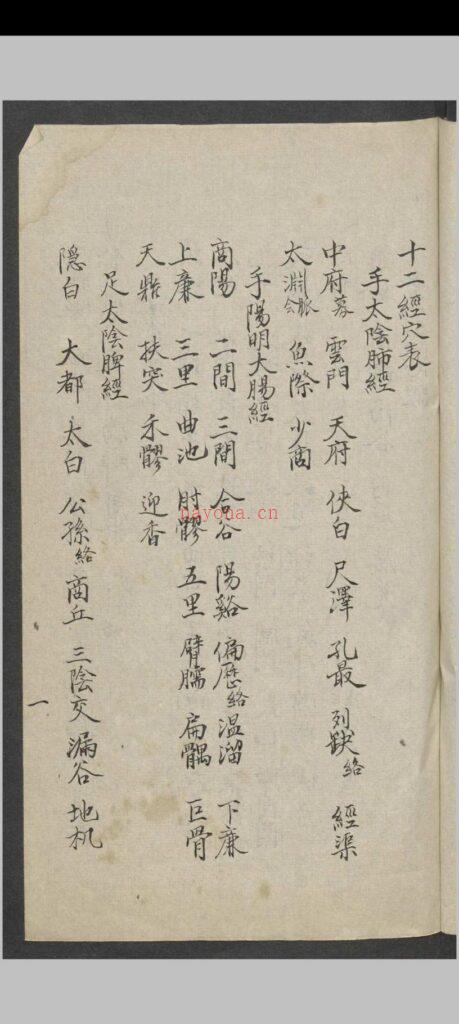 十二經穴表
手太陰肺經
中府募 雲門 天府 侠白 尺澤 孔最 列缺絡 經渠
太淵脈会 魚際 少商
手陽明大腸經
商陽 二間 三間 合谷 陽谿 偏歷絡 温溜 下廉
上廉 三里 曲池 肘髎 五里 臂臑 扁髃 巨骨
天鼎 扶突 禾髎 迎香
足太陰脾經
隠白 大都 太白 公孫絡 商丘 三陰交 漏谷 地机
一
nayoua.cn